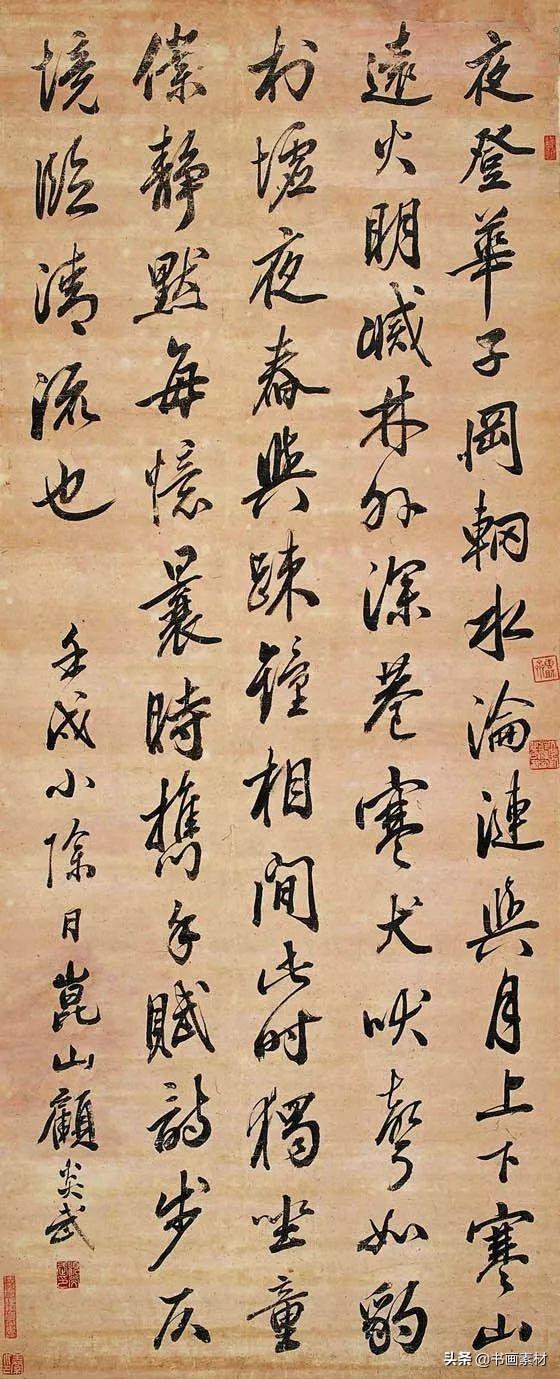 夜登華子岡輞水淪漣與月上下寒山
遠火明滅林外深巷寒犬吠聲如豹
村墟夜舂與疎鐘相間此时獨坐童
僕静默每憶曩時携手賦詩步仄
境臨清流也
壬戌小除日崑山顧炎武
头条 @书画素材